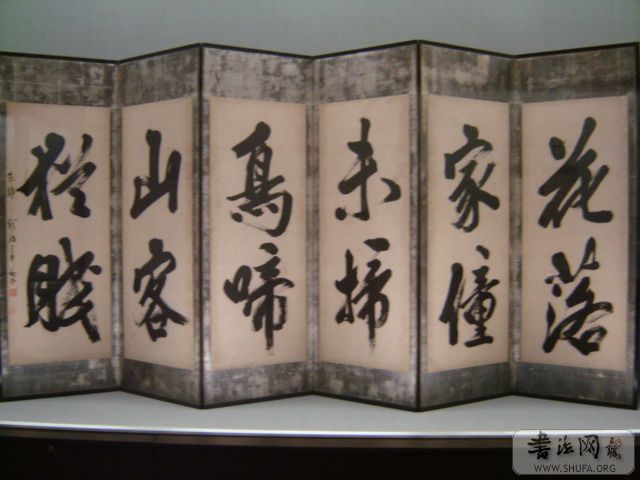 花落
家僮
未掃
鳥啼
山客
猶眠
書法网
WWW.SHUFA.ORG